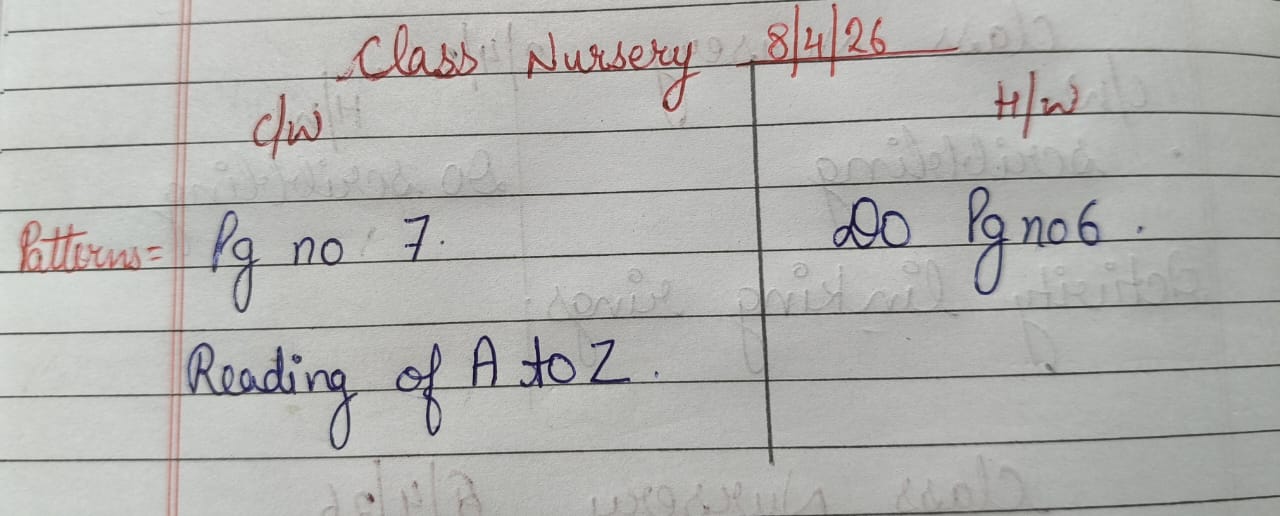 Class Nursery 8/4/26
C/W H/W
Patterns = Pg no 7. Do Pg no 6.
Reading of A to Z.